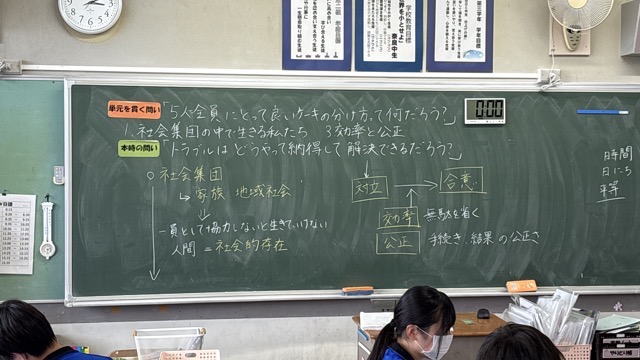 学校教育目標
世界を小とせよ
奈良中生
第三学年 学年目標
単元を貫く問い
「5人全員にとって良いケーキの分け方って何だろう?」
0:00
1.社会集団の中で生きる私たち 3効率と公正
本時の問い
「トラブルはどうやって納得して解決できるだろう?」
社会集団
↳ 家族 地域社会
一員として協力しないと生きていけない
人間 = 社会的存在
対立
合意
効率 無駄を省く
公正 手続き 結果の公正さ
時間
日にち
平等